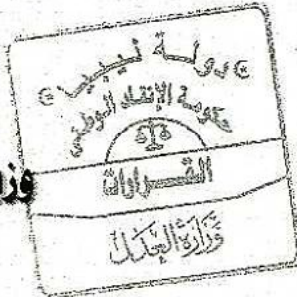 دولة ليبيا
حكومة الإنقاذ الوطني
القرارات
وزارة العدل
وزا